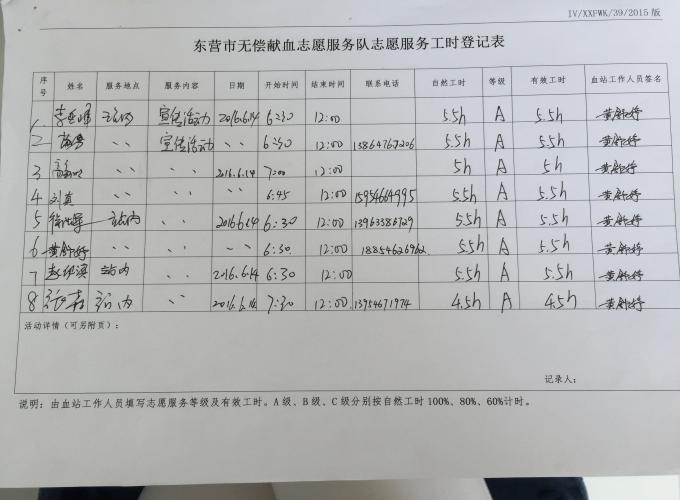 IV/XXFWK/39/2015版
东营市无偿献血志愿服务队志愿服务工时登记表
序号 姓名 服务地点 服务内容 日期 开始时间 结束时间 联系电话 自然工时 等级 有效工时 血站工作人员签名
1. 站内 宣传活动 2016.6.14 6:30 12:00 5.5h A 5.5h 黄舒婷
2 、、 宣传活动 、、 6:30 12:00 13864767206 5.5h A 5.5h 黄舒婷
3 、、 、、 2016.6.14 7:00 12:00 5h A 5h 黄舒婷
4 刘真 、、 、、 、、 6:45 12:00 15954664995 5.5h A 5.5h 黄舒婷
5 站内 、、 2016.6.14 6:30 12:00 13963386729 5.5h A 5.5h 黄舒婷
6 黄舒婷 、、 、、 、、 6:30 12:00 18854626962 5.5h A 5.5h 黄舒婷
7 站内 、、 2016.6.14 6:30 12:00 5.5h A 5.5h 黄舒婷
8 站内 、、 2016.6.14 7:30 12:00 13954671974 4.5h A 4.5h 黄舒婷
活动详情（可另附页）：
记录人：
说明：由血站工作人员填写志愿服务等级及有效工时。A级、B级、C级分别按自然工时100%、80%、60%计时。